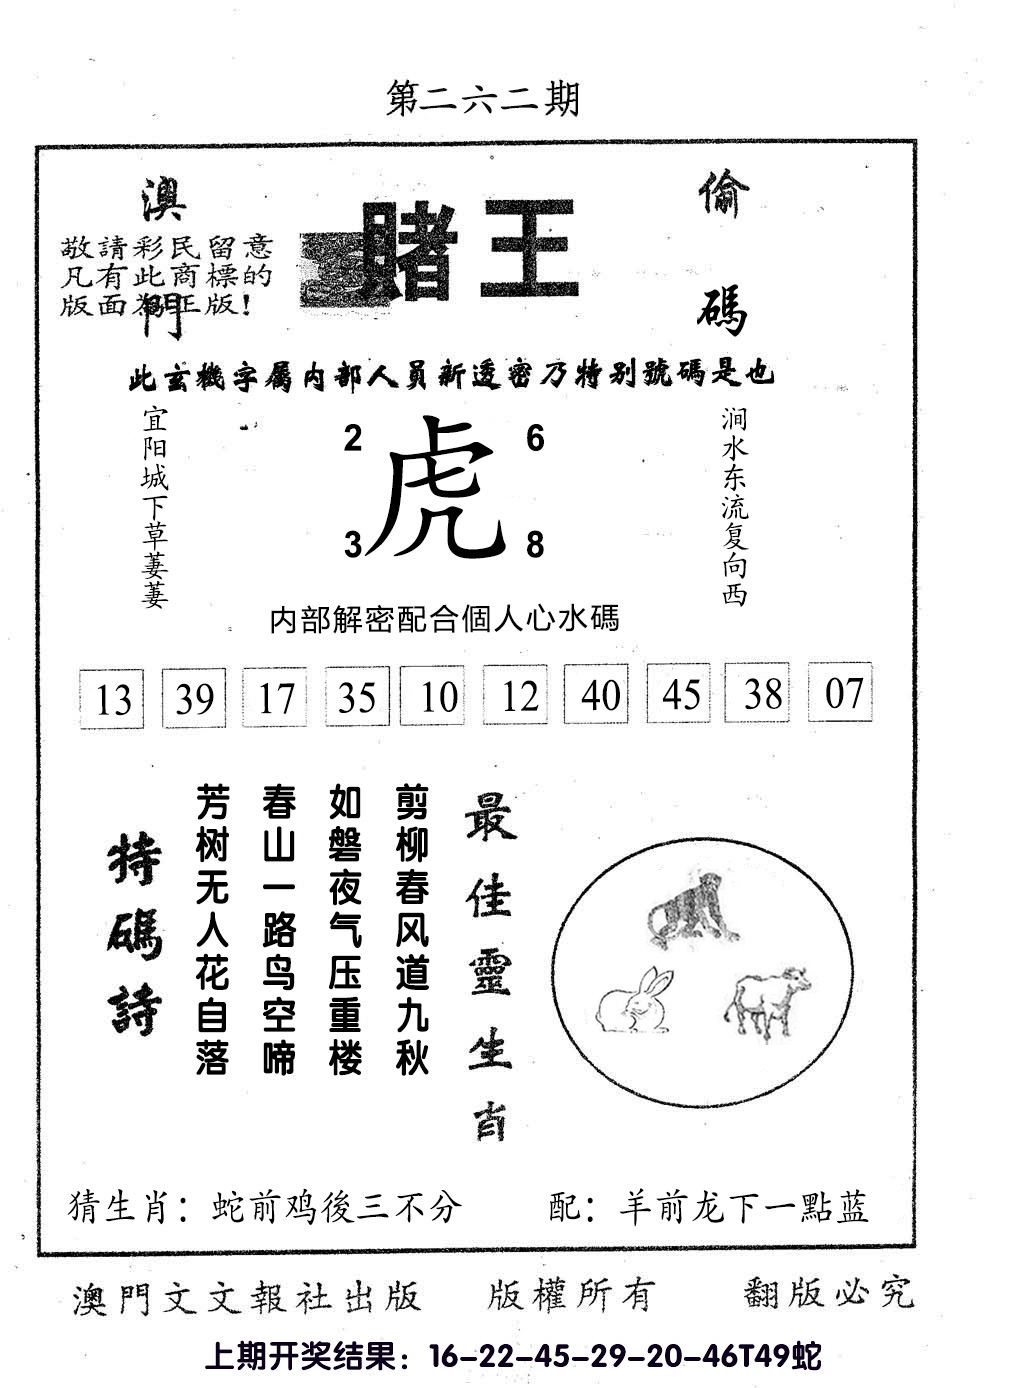 第二六二期
澳門
賭王
偷碼
敬請彩民留意
凡有此商標的
版面為正版!
此玄機字屬内部人員新透密乃特别號碼是也
宜阳城下草萋萋
2 6
虎
3 8
涧水东流复向西
内部解密配合個人心水碼
13 39 17 35 10 12 40 45 38 07
特碼詩
芳树无人花自落
春山一路鸟空啼
如磐夜气压重楼
剪柳春风道九秋
最佳靈生肖
猜生肖：蛇前鸡後三不分
配：羊前龙下一點蓝
澳門文文報社出版 版權所有 翻版必究
上期开奖结果：16-22-45-29-20-46T49蛇